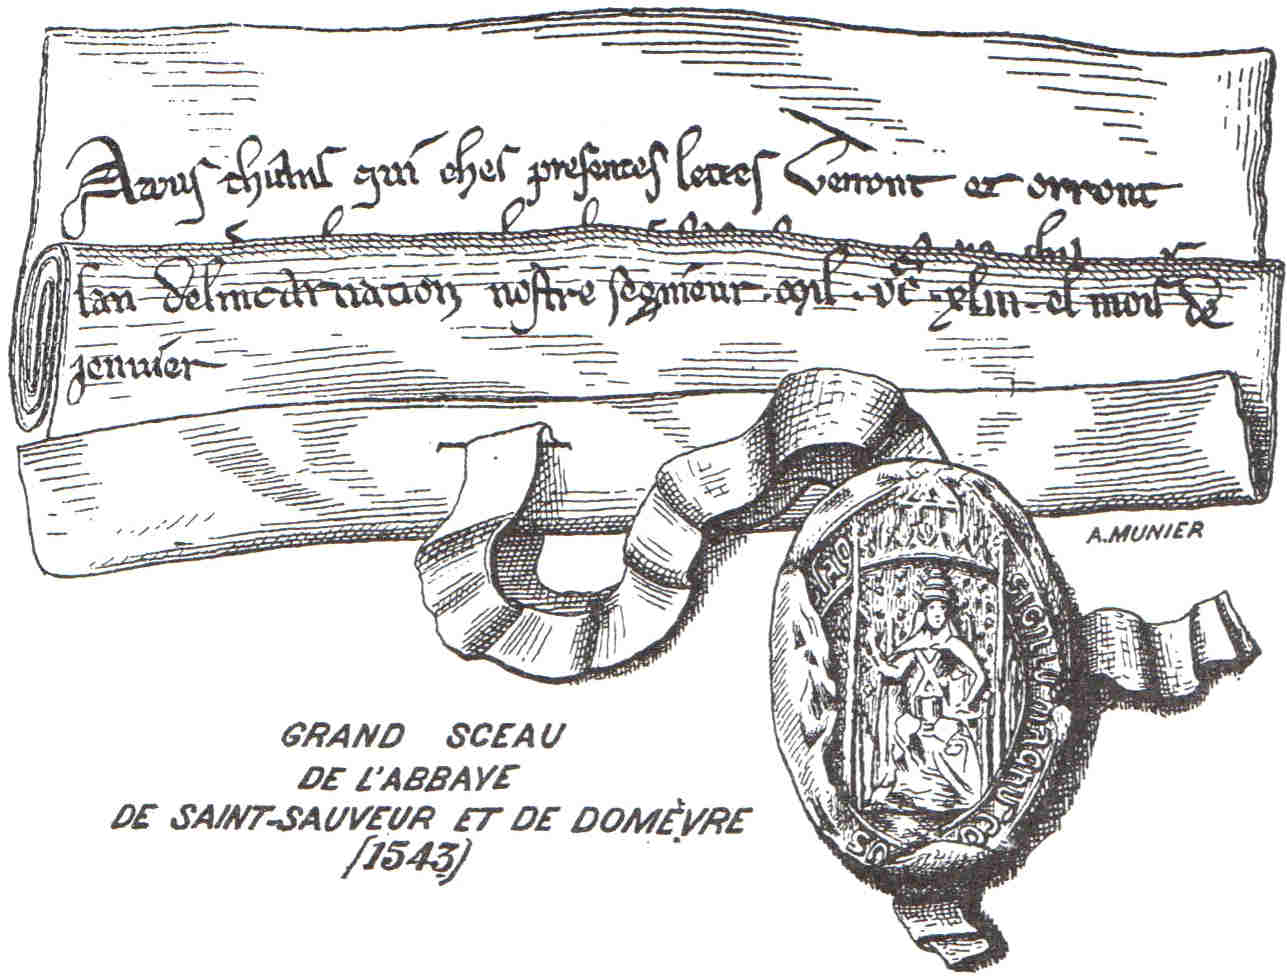 A tous chials qui ches presentes lettres Verront et orront
lan delincarnation nostre segnieur · mil · vc · xliii · el mois de
jenvier
A. MUNIER
SIGILLU MAGNU CO
US
GRAND SCEAU
DE L'ABBAYE
DE SAINT-SAUVEUR ET DE DOMÈVRE
(1543)